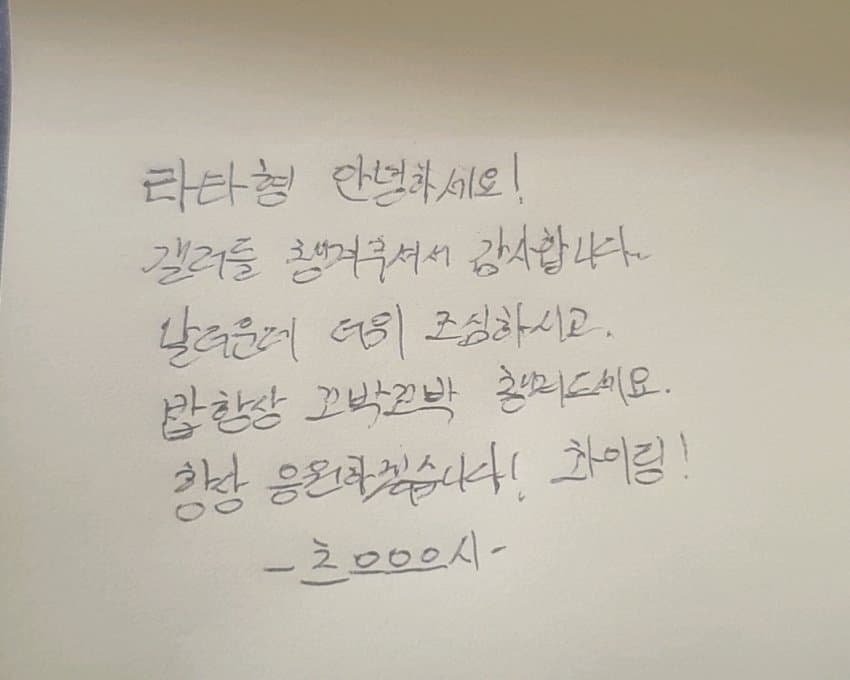 타타형 안녕하세요!
갤러들 챙겨주셔서 감사합니다~
날더운데 더위 조심하시고.
밥 항상 꼬박꼬박 챙겨드세요.
항상 응원하겠습니다! 화이팅!
- 초ㅇㅇㅇ시 -